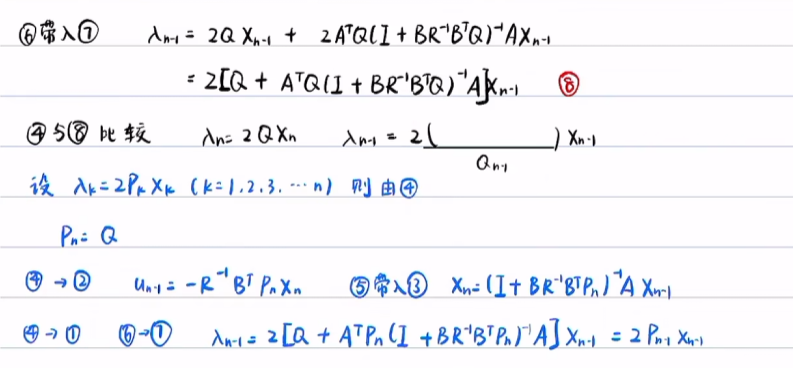 ⑥带入⑦ λn-1 = 2Q Xn-1 + 2AᵀQ(I + BR⁻¹BᵀQ)⁻¹AXn-1
= 2[Q + AᵀQ(I + BR⁻¹BᵀQ)⁻¹A]Xn-1 ⑧
④与⑧比较 λn = 2QXn λn-1 = 2(______)Xn-1
Qn-1
设 λk = 2Pk Xk (k=1.2.3.…n) 则由④
Pn = Q
④→② un-1 = -R⁻¹BᵀPnXn ⑤带入③ Xn = (I + BR⁻¹BᵀPn)⁻¹A Xn-1
④→① ⑥→⑦ λn-1 = 2[Q + AᵀPn(I + BR⁻¹BᵀPn)⁻¹A]Xn-1 = 2Pn-1 Xn-1